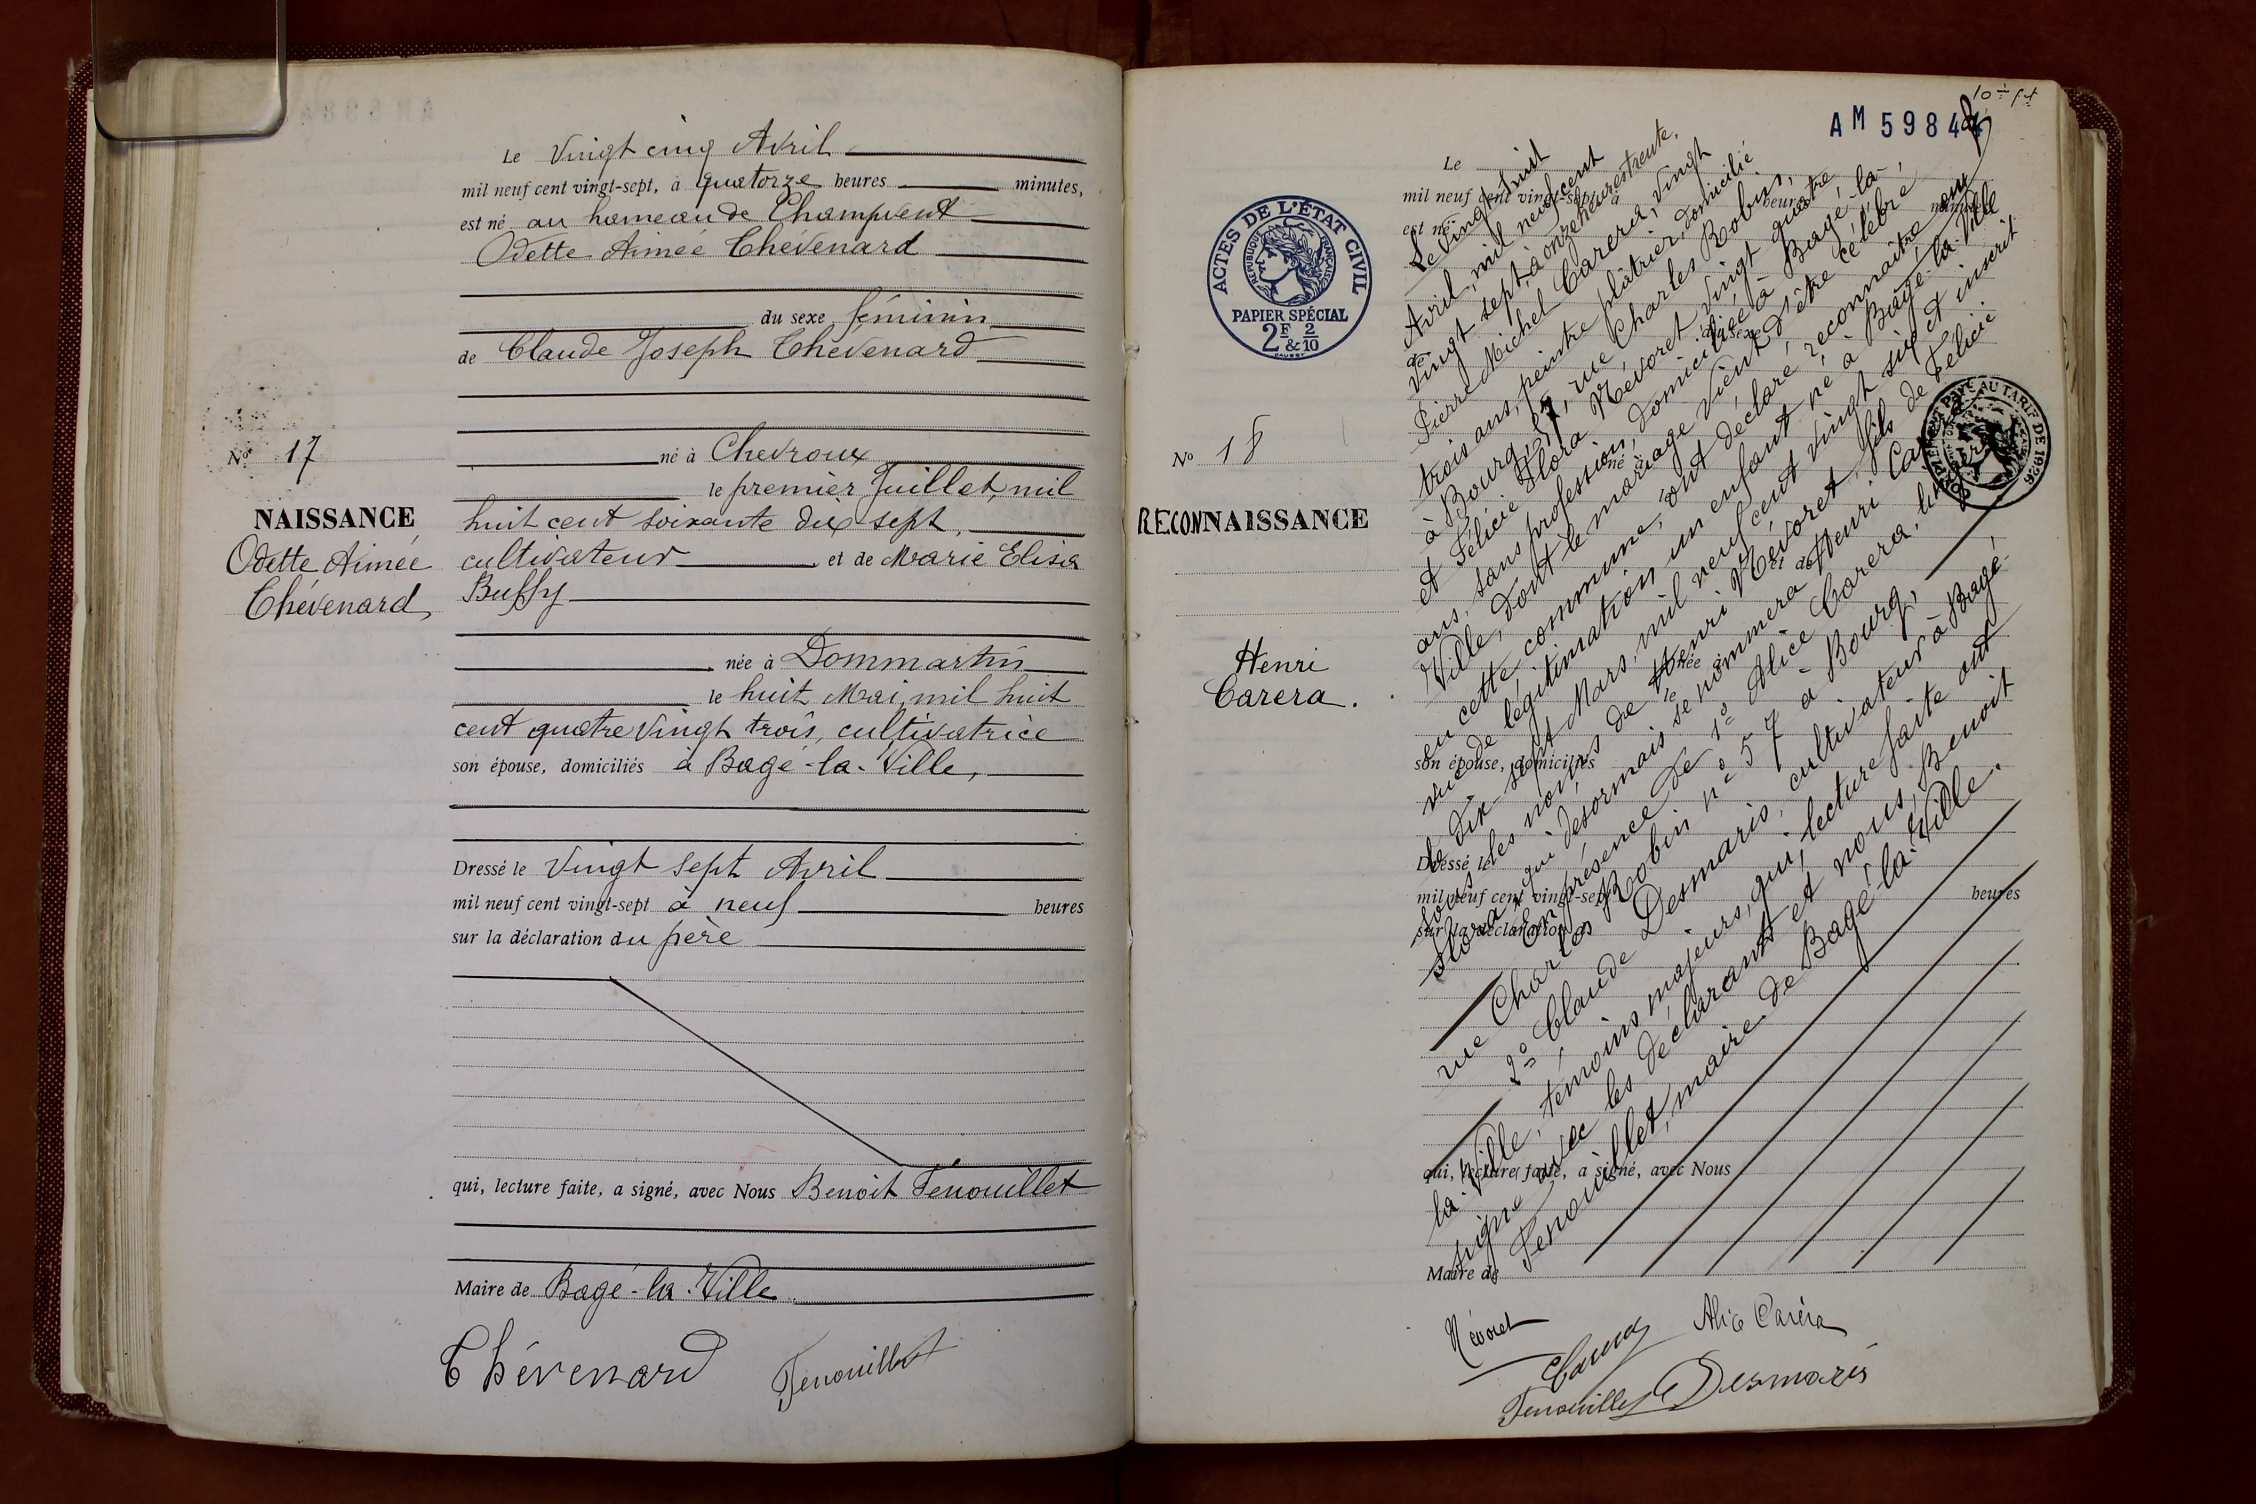 Le Vingt cinq Avril
mil neuf cent vingt-sept, à quatorze heures minutes,
est né au hameau de Champvent
Odette Aimée Chévenard
du sexe féminin
de Claude Joseph Chévenard
né à Chevroux
le premier Juillet, mil
huit cent soixante dix-sept,
cultivateur et de Marie Elisa
Buffy
née à Dommartin
le huit Mai, mil huit
cent quatre vingt trois, cultivatrice
son épouse, domiciliés à Bâgé-la-Ville,
Dressé le Vingt sept Avril
mil neuf cent vingt-sept à neuf heures
sur la déclaration du père
qui, lecture faite, a signé, avec Nous Benoit Fenouillet
Maire de Bâgé-la-Ville
Chévenard Fenouillet
No 17
NAISSANCE
Odette Aimée
Chévenard
AM 5984
ACTES DE L'ÉTAT CIVIL
RÉPUBLIQUE FRANÇAISE
PAPIER SPÉCIAL
2F & 2/10
No 18
RECONNAISSANCE
Henri
Carera.
Le
mil neuf cent vingt-sept, à heures minutes
est né
de
du sexe
né à
et de
née à
le
son épouse, domiciliés
Dressé le
mil neuf cent vingt-sept heures
sur la déclaration
qui, lecture faite, a signé, avec Nous
Maire de
Le vingt huit
Avril, mil neuf cent
vingt sept, à onze heures trente,
Pierre Michel Carera, vingt
trois ans, peintre plâtrier, domicilié
à Bourg, 57, rue Charles Robin,
et Félicie Flora Névoret, vingt quatre
ans, sans profession, domiciliée à Bâgé-la-
Ville, dont le mariage vient d'être célébré
en cette commune, ont déclaré reconnaître en
vue de légitimation un enfant né à Bâgé-la-Ville
le dix-sept Mars, mil neuf cent vingt six et inscrit
sous les noms de Henri Névoret, fils de Félicie
Flora, qui désormais se nommera Henri
En présence de 1° Alice Carera,
rue Charles Robin n° 57 à Bourg,
2° Claude Desmaris, cultivateur à Bâgé-
la-Ville, témoins majeurs, qui, lecture faite ont
signé avec les déclarants et nous, Benoit
Fenouillet, maire de Bâgé-la-Ville.
COMPLÉMENT PAYÉ AU TARIF DE 1926
Névoret
Carera
Alice Caréra
Fenouillet Desmaris